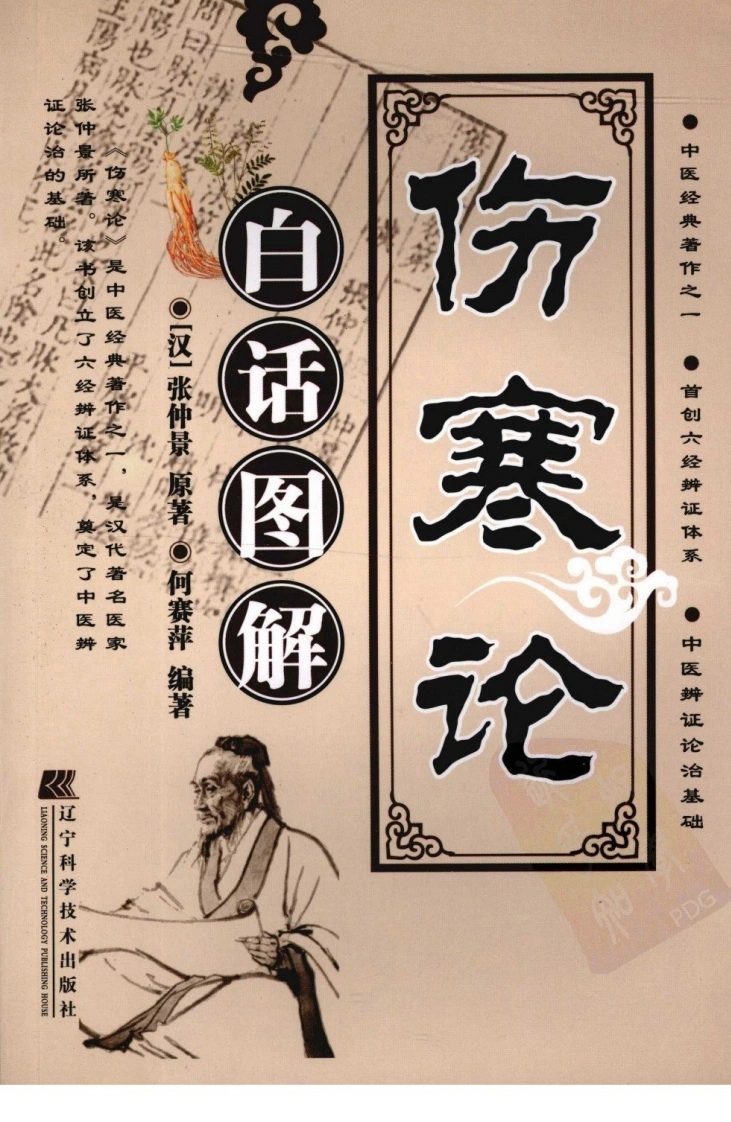 中医经典著作之一
首创六经辨证体系
中医辨证论治基础
伤寒论
白话图解
[汉]张仲景 原著
何赛萍 编著
《伤寒论》是中医经典著作之一，是汉代著名医家
张仲景所著。该书创立了六经辨证体系，奠定了中医辨
证论治的基础。
辽宁科学技术出版社
LIAONING SCIENCE AND TECHNOLOGY PUBLISHING HOUSE
PDG